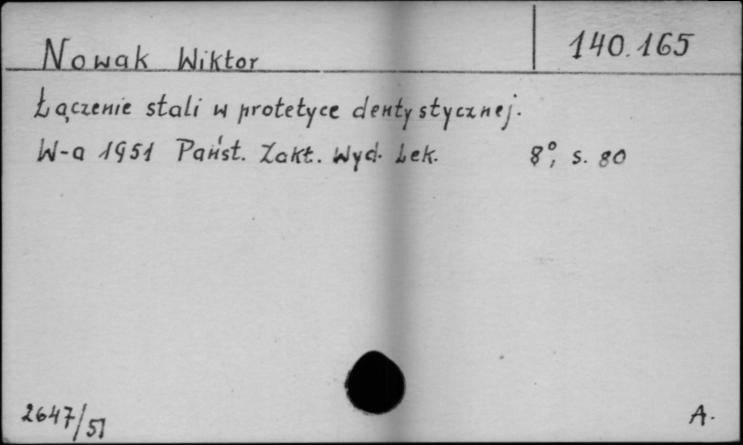 Nowak Wiktor 140.165
Łączenie stali w protetyce dentystycznej.
W-a 1951 Państ. Zakt. Wyd. Lek. 8°, s. 80
2647/51 A.